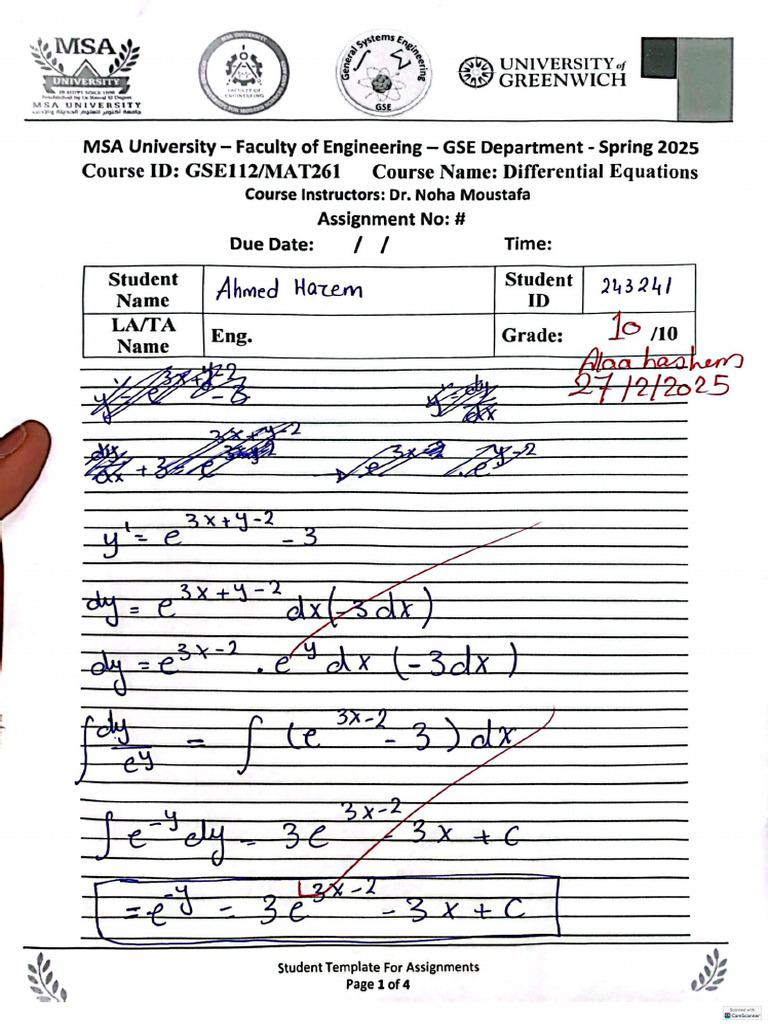 MSA
UNIVERSITY
MSA UNIVERSITY
General Systems Engineering
GSE
UNIVERSITY of
GREENWICH
MSA University – Faculty of Engineering – GSE Department - Spring 2025
Course ID: GSE112/MAT261 Course Name: Differential Equations
Course Instructors: Dr. Noha Moustafa
Assignment No: #
Due Date: / / Time:
Student Name Ahmed Hazem Student ID 243241
LA/TA Name Eng. Grade: 10 /10
Alaa hashem
27/2/2025
y' = e^(3x+y-2) - 3
dy = e^(3x+y-2) dx (-3dx)
dy = e^(3x-2) . e^y dx (-3dx)
∫ dy/e^y = ∫ (e^(3x-2) - 3) dx
∫ e^-y dy = 3e^(3x-2) - 3x + c
= e^-y = 3e^(3x-2) - 3x + c
Student Template For Assignments
Page 1 of 4
Scanned with
CamScanner